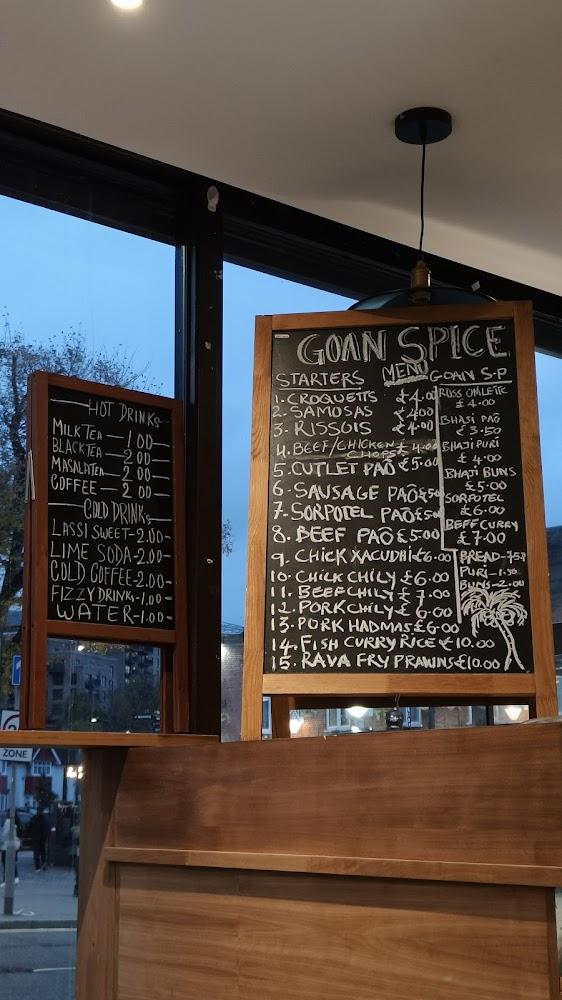 HOT DRINKS
MILK TEA — 1 00
BLACK TEA — 2 00
MASALA TEA — 2 00
COFFEE — 2 00
COLD DRINKS
LASSI SWEET - 2.00
LIME SODA - 2.00
COLD COFFEE - 2.00
FIZZY DRINK - 1.00
WATER - 1.00
GOAN SPICE
MENU
STARTERS
1. CROQUETTS £4.00
2. SAMOSAS £4.00
3. RISSOIS £4.00
4. BEEF/CHICKEN £4.00
CHOPS
5. CUTLET PAÕ £5.00
6. SAUSAGE PAÕ £5.00
7. SORPOTEL PAÕ £5.00
8. BEEF PAÕ £5.00
9. CHICK XACUDHI £6.00
10. CHICK CHILY £6.00
11. BEEF CHILY £7.00
12. PORK CHILY £6.00
13. PORK HADMAS £6.00
14. FISH CURRY RICE £10.00
15. RAVA FRY PRAWNS £10.00
GOAN S.P
ROSS OMLETTE
£4.00
BHAJI PAÕ
£3.50
BHAJI PURI
£4.00
BHAJI BUNS
£5.00
SORPOTEL
£6.00
BEFF CURRY
£7.00
BREAD - 75P
PURI - 1.50
BUNS - 2.00
ZONE